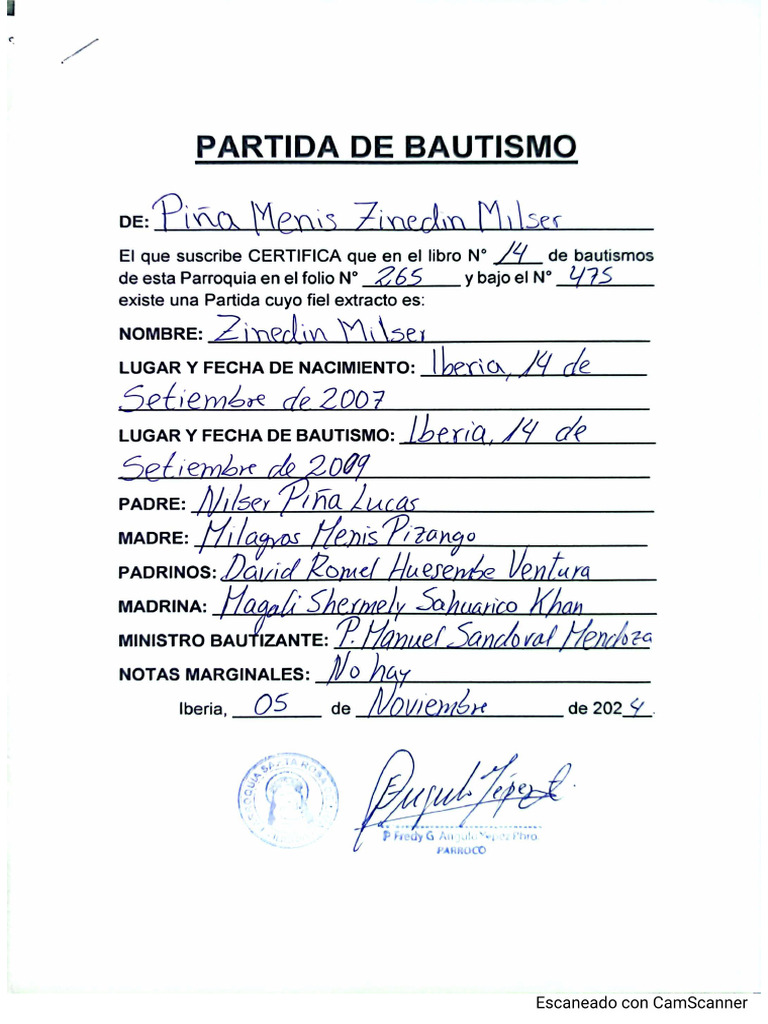 PARTIDA DE BAUTISMO
DE: Piña Menis Zinedin Milser
El que suscribe CERTIFICA que en el libro N° 14 de bautismos
de esta Parroquia en el folio N° 265 y bajo el N° 475
existe una Partida cuyo fiel extracto es:
NOMBRE: Zinedin Milser
LUGAR Y FECHA DE NACIMIENTO: Iberia, 14 de
Setiembre de 2007
LUGAR Y FECHA DE BAUTISMO: Iberia, 14 de
Setiembre de 2009
PADRE: Nilser Piña Lucas
MADRE: Milagros Menis Pizango
PADRINOS: David Romel Huesembe Ventura
MADRINA: Magali Shermely Sahuarico Khan
MINISTRO BAUTIZANTE: P. Manuel Sandoval Mendoza
NOTAS MARGINALES: No hay
Iberia, 05 de Noviembre de 2024.
PARROQUIA SANTA ROSA
P. Fredy G. Angulo Yepez Pbro.
PARROCO
Escaneado con CamScanner